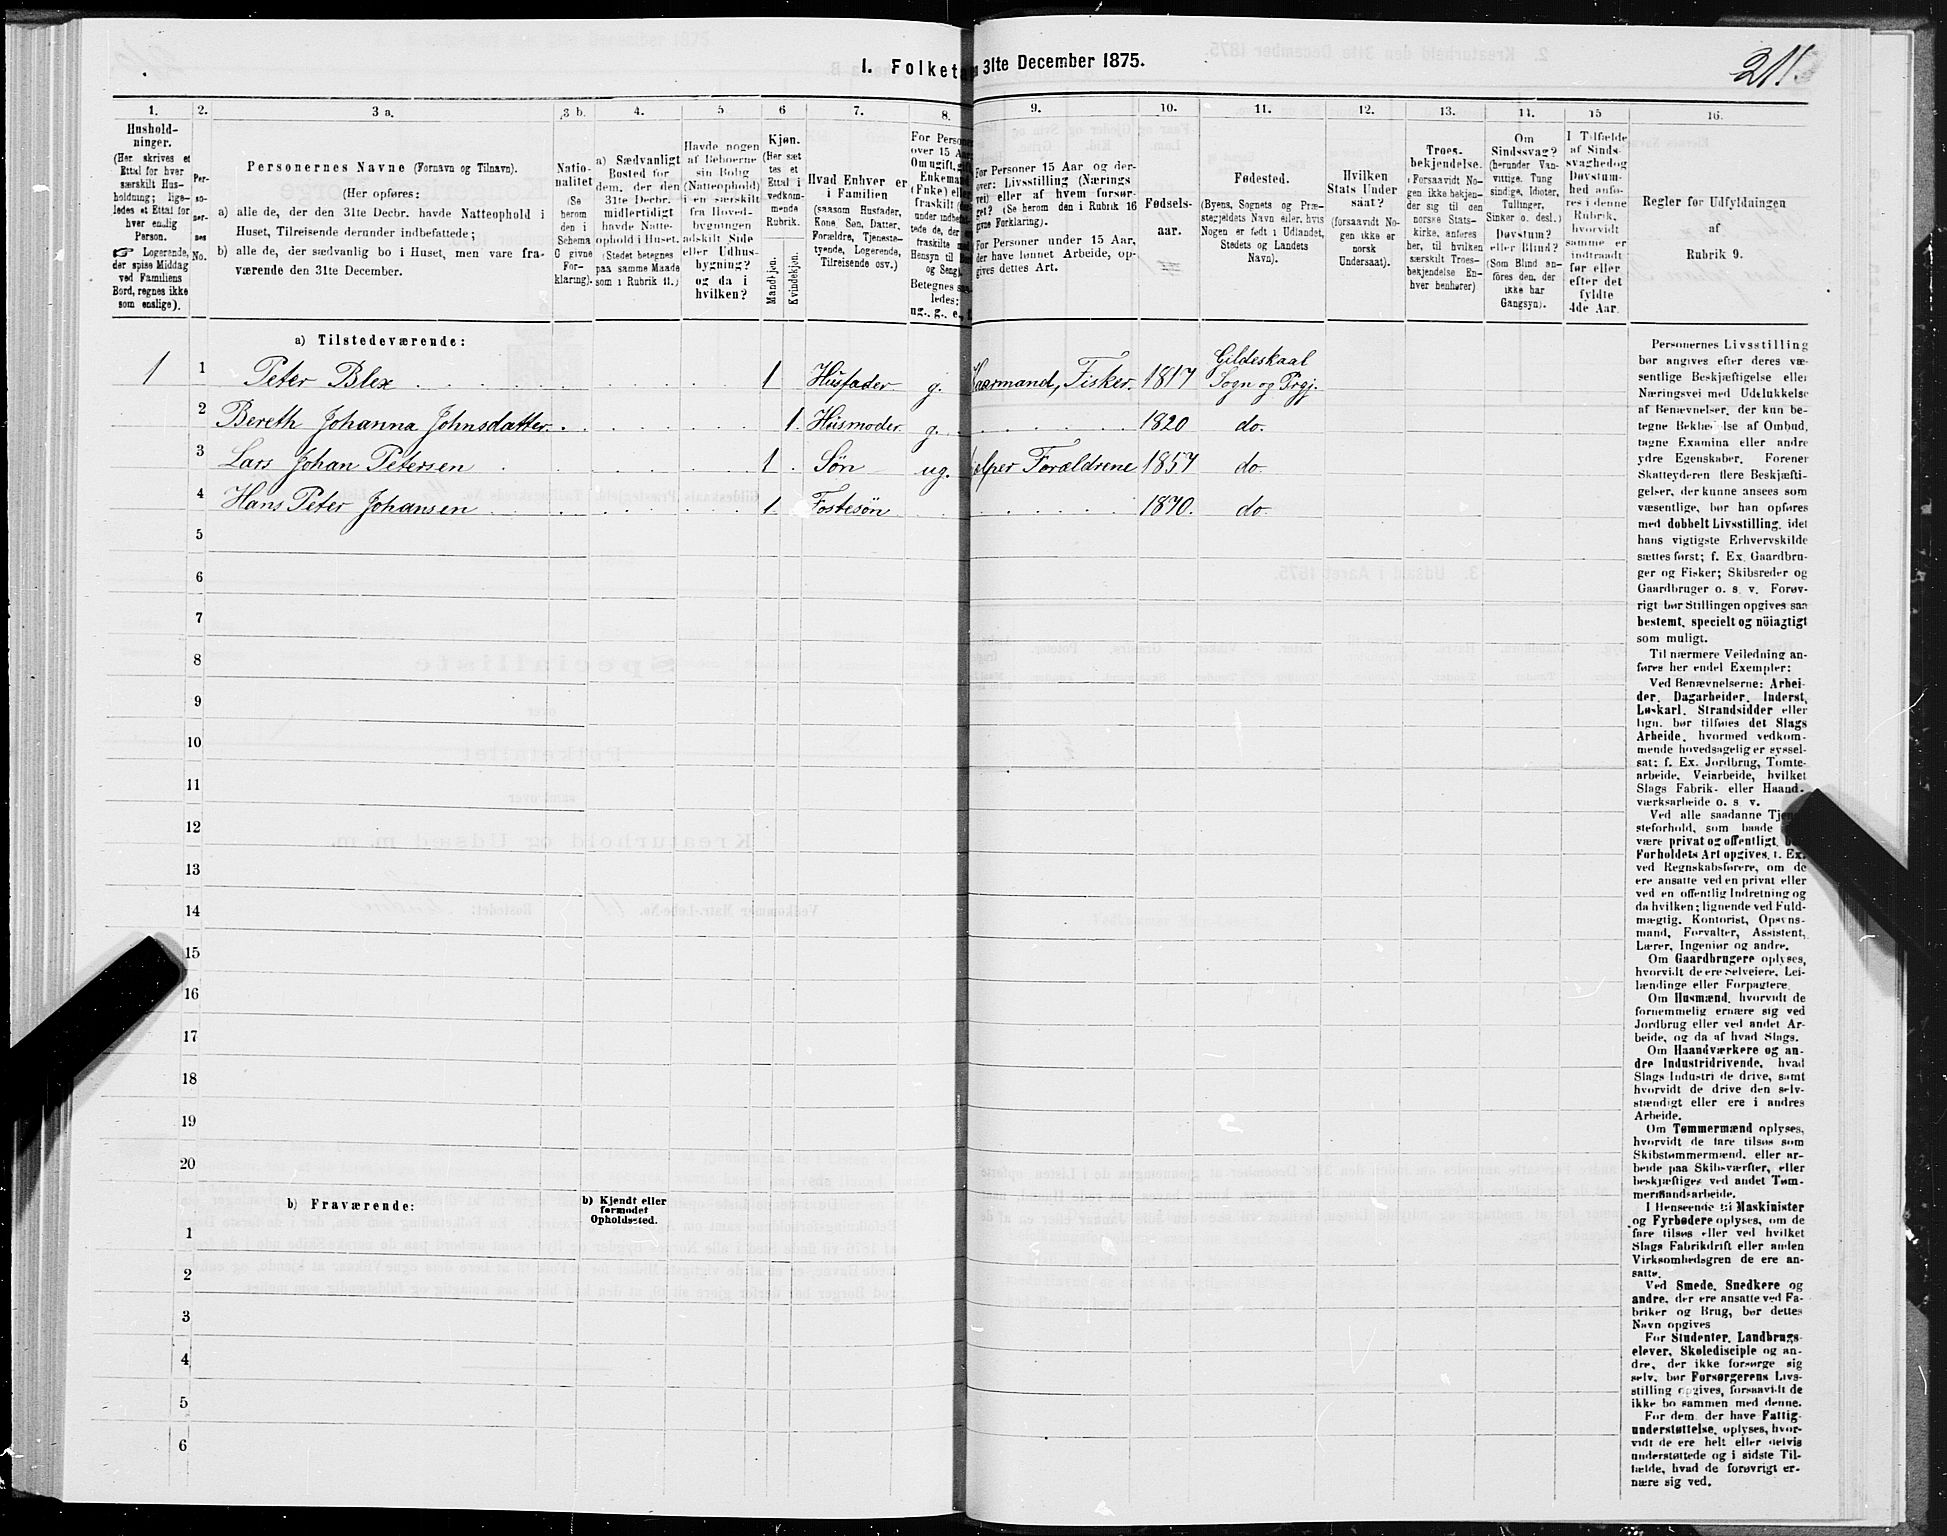 I. Folket 31te December 1875.
211
1.
2.
3 a.
3 b.
4.
5
6
7.
8.
9.
10.
11.
12.
13.
14.
15
16.
Hushold-
ninger.
(Her skrives et
Ettal for hver
særskilt Hus-
holdning; lige-
ledes et Ettal for
hver enslig
Person.
☞ Logerende,
der spise Middag
ved Familiens
Bord, regnes ikke
som enslige).
Per-
so-
ner-
nes
No.
Personernes Navne (Fornavn og Tilnavn).
(Her opføres:
a) alle de, der den 31te Decbr. havde Natteophold i
Huset, Tilreisende derunder indbefattede;
b) alle de, der sædvanlig bo i Huset, men vare fra-
værende den 31te December.
Natio-
nalitet
(Se
herom
den i
Schema
C givne
For-
klaring).
a) Sædvanligt
Bosted for
dem, der den
31te Decbr.
midlertidigt
havde Natte-
ophold i Huset.
(Stedet betegnes
paa samme Maade
som i Rubrik 11.)
Havde nogen
af Beboerne
sin Bolig
(Natteophold)
i en særskilt
fra Hoved-
bygningen
adskilt Side
eller Udhus-
bygning?
og da i
hvilken?
Kjøn.
(Her sæt
tes et
Ettal i
vedkom-
mende
Rubrik.
Mandkjøn.
Kvindekjøn.
Hvad Enhver er
i Familien
(saasom Husfader,
Kone, Søn, Datter,
Forældre, Tjeneste-
tyende, Logerende,
Tilreisende osv.)
For Person
over 15 Aa
Om ugift, gift
Enkemand
(Enke) eller
fraskilt
under indbefat-
tede de, der
fraskilte
Hensyn til
og Seng).
Betegnes saa-
ledes:
ug., g., e.,
For Personer 15 Aar og der-
over: Livsstilling (Nærings
vei) eller af hvem forsør-
get? (Se herom den i Rubrik 16
givne Forklaring).
For Personer under 15 Aar,
der have lønnet Arbeide, op-
gives dettes Art.
Fødsels-
aar.
Fødested.
(Byens, Sognets og Præ-
stegjeldets Navn eller, hvis
Nogen er født i Udlandet,
Stedets og Landets
Navn).
Hvilken
Stats Under
saat?
(forsaavidt No-
gen ikke er
norsk
Undersaat).
Troes-
bekjendelse.
(Forsaavidt No-
gen ikke bekjen-
der sig til den
norske Stats-
kirke, anføres
her, til hvilken
særskilt Troes-
bekjendelse En-
hver henhører)
Om
Sindssvag?
(herunder Van-
vittige, Tung
sindige, Idioter,
Tullinger,
Sinker o. desl.)
Døvstum?
eller Blind?
(Som Blind an-
føres den, der
ikke har
Gangsyn).
I Tilfælde
af Sinds-
svaghed og
Døvstum-
hed anfø-
res i denne
Rubrik,
hvorvidt
samme er
indtraadt
før eller
efter det
fyldte
4de Aar.
Regler for Udfyldningen
af
Rubrik 9.
a) Tilstedeværende:
1 1 Peter Blex 1 Husfader g. aarmand, Fisker. 1817 Gildeskaal
Sogn og Prgj.
2 Bereth Johanna Johnsdatter. 1 Husmoder g. 1820 do.
3 Lars Johan Petersen 1 Søn ug. elper Forældrene 1857 do.
4 Hans Peter Johansen 1 Fostesøn 1870. do.
5
6
7
8
9
10
11
12
13
14
15
16
17
18
19
20
b) Fraværende:
b) Kjendt eller
formodet
Opholdssted.
1
2
3
4
5
6
Personernes Livsstilling
bør angives efter deres væ-
sentlige Beskjæftigelse eller
Næringsvei med Udelukkelse
af Benævnelser, der kun be-
tegne Beklædelse af Ombud,
tagne Examina eller andre
ydre Egenskaber. Forener
Skatteyderen flere Beskjæfti-
gelser, der kunne ansees som
væsentlige, bør han opføres
med dobbelt Livsstilling, idet
hans vigtigste Erhvervskilde
sættes først; f. Ex. Gaardbru-
ger og Fisker; Skibsreder og
Gaardbruger o. s. v. Forøv-
rigt bør Stillingen opgives saa
bestemt, specielt og nöiagtigt
som muligt.
Til nærmere Veiledning an-
føres her endel Exempler:
Ved Benævnelserne: Arbei-
der, Dagarbeider, Inderst,
Løskarl, Strandsidder eller
lign. bør tilføies det Slags
Arbeide, hvormed vedkom-
mende hovedsagelig er syssel-
sat; f. Ex. Jordbrug, Tomte-
arbeide, Veiarbeide, hvilket
Slags Fabrik- eller Haand-
værksarbeide o. s. v.
Ved alle saadanne Tjene
steforhold, som baade
være privat og offentligt,
Forholdets Art opgives, f. Ex.
ved Regnskabsførere, om de
ere ansatte ved en privat eller
ved en offentlig Indretning og
da hvilken; lignende ved Fuld-
mægtig, Kontorist, Opsyns-
mand, Forvalter, Assistent,
Lærer, Ingeniør og andre.
Om Gaardbrugere oplyses,
hvorvidt de ere Selveiere, Lei-
lændinge eller Forpagtere.
Om Husmænd, hvorvidt de
fornemmelig ernære sig ved
Jordbrug eller ved andet Ar-
beide, og da af hvad Slags.
Om Haandværkere og an-
dre Industridrivende, hvad
Slags Industri de drive, samt
hvorvidt de drive den selv-
stændigt eller ere i andres
Arbeide.
Om Tømmermænd oplyses,
hvorvidt de fare tilsøs som
Skibstømmermænd, eller ar-
beide paa Skibsværfter, eller
beskjæftiges ved andet Tøm-
mermandsarbeide.
I Henseende til Maskinister
og Fyrbødere oplyses, om de
fare tilsøs eller ved hvilket
Slags Fabrikdrift eller anden
Virksomhedsgren de ere an-
satte.
Ved Smede, Snedkere og
andre, der ere ansatte ved Fa-
briker og Brug, bør dettes
Navn opgives
For Studenter, Landbrugs-
elever, Skoledisciple og an-
dre, der ikke forsørge sig
selv, bør Forsørgerens Livs-
stilling opgives, forsaavidt de
ikke bo sammen med denne.
For dem, der have Fattig-
understøttelse, oplyses, hvor-
vidt de ere helt eller delvis
understøttede og i sidste Til-
fælde, hvad de forøvrigt er-
nære sig ved.